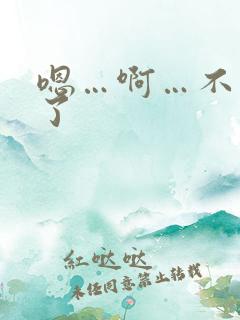 嗯…啊…不
了
紅哒哒
未经同意禁止转载